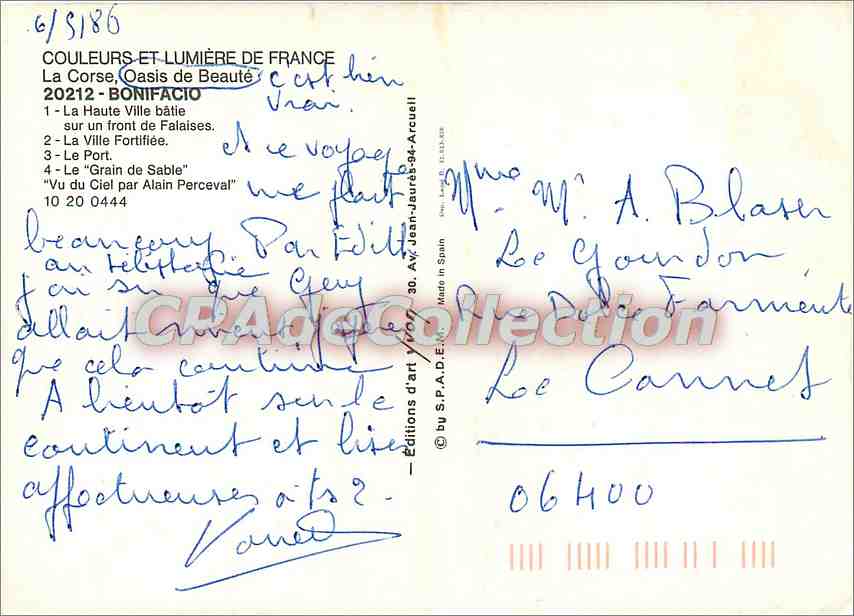 6/5/86
COULEURS ET LUMIÈRE DE FRANCE
La Corse, Oasis de Beauté c'est bien
vrai.
20212 - BONIFACIO
1 - La Haute Ville bâtie
sur un front de Falaises.
2 - La Ville Fortifiée.
3 - Le Port.
4 - Le "Grain de Sable"
"Vu du Ciel par Alain Perceval"
10 20 0444
et ce voyage
me plait
beaucoup Par Edith
au téléphone
j'ai su que Guy
allait mieux,
que cela continue
A bientôt sur le
continent et bises
affectueuses à ts 2 -
— Editions d'art yvon, 30. Av. Jean-Jaurès-94-Arcueil
© by S.P.A.D.E.M. Made in Spain
Mme. Mr A. Blaser
Le Gourdon
Rue Dolce Farniente
Le Cannet
06400
CPAdeCollection